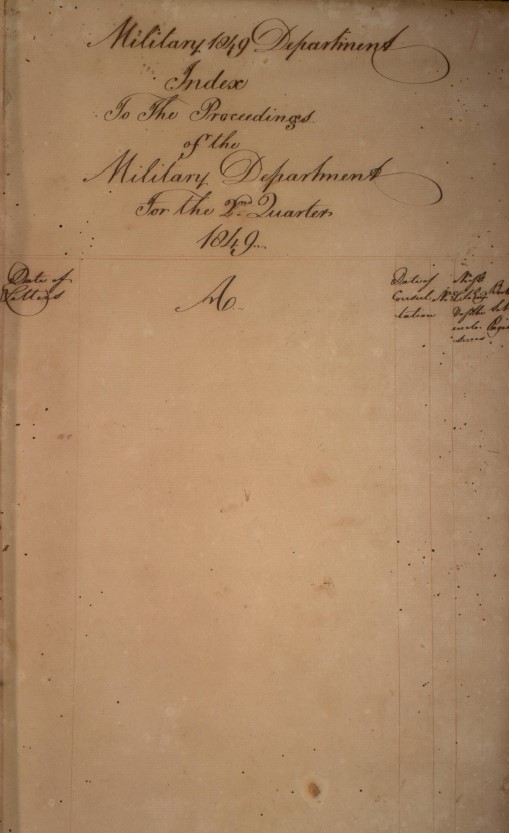 Military 1849 Department
Index
To The Proceedings
of the
Military Department
For the 2nd Quarter
1849.
Date of
Letters
A.
Date of
Consul
tation
No.